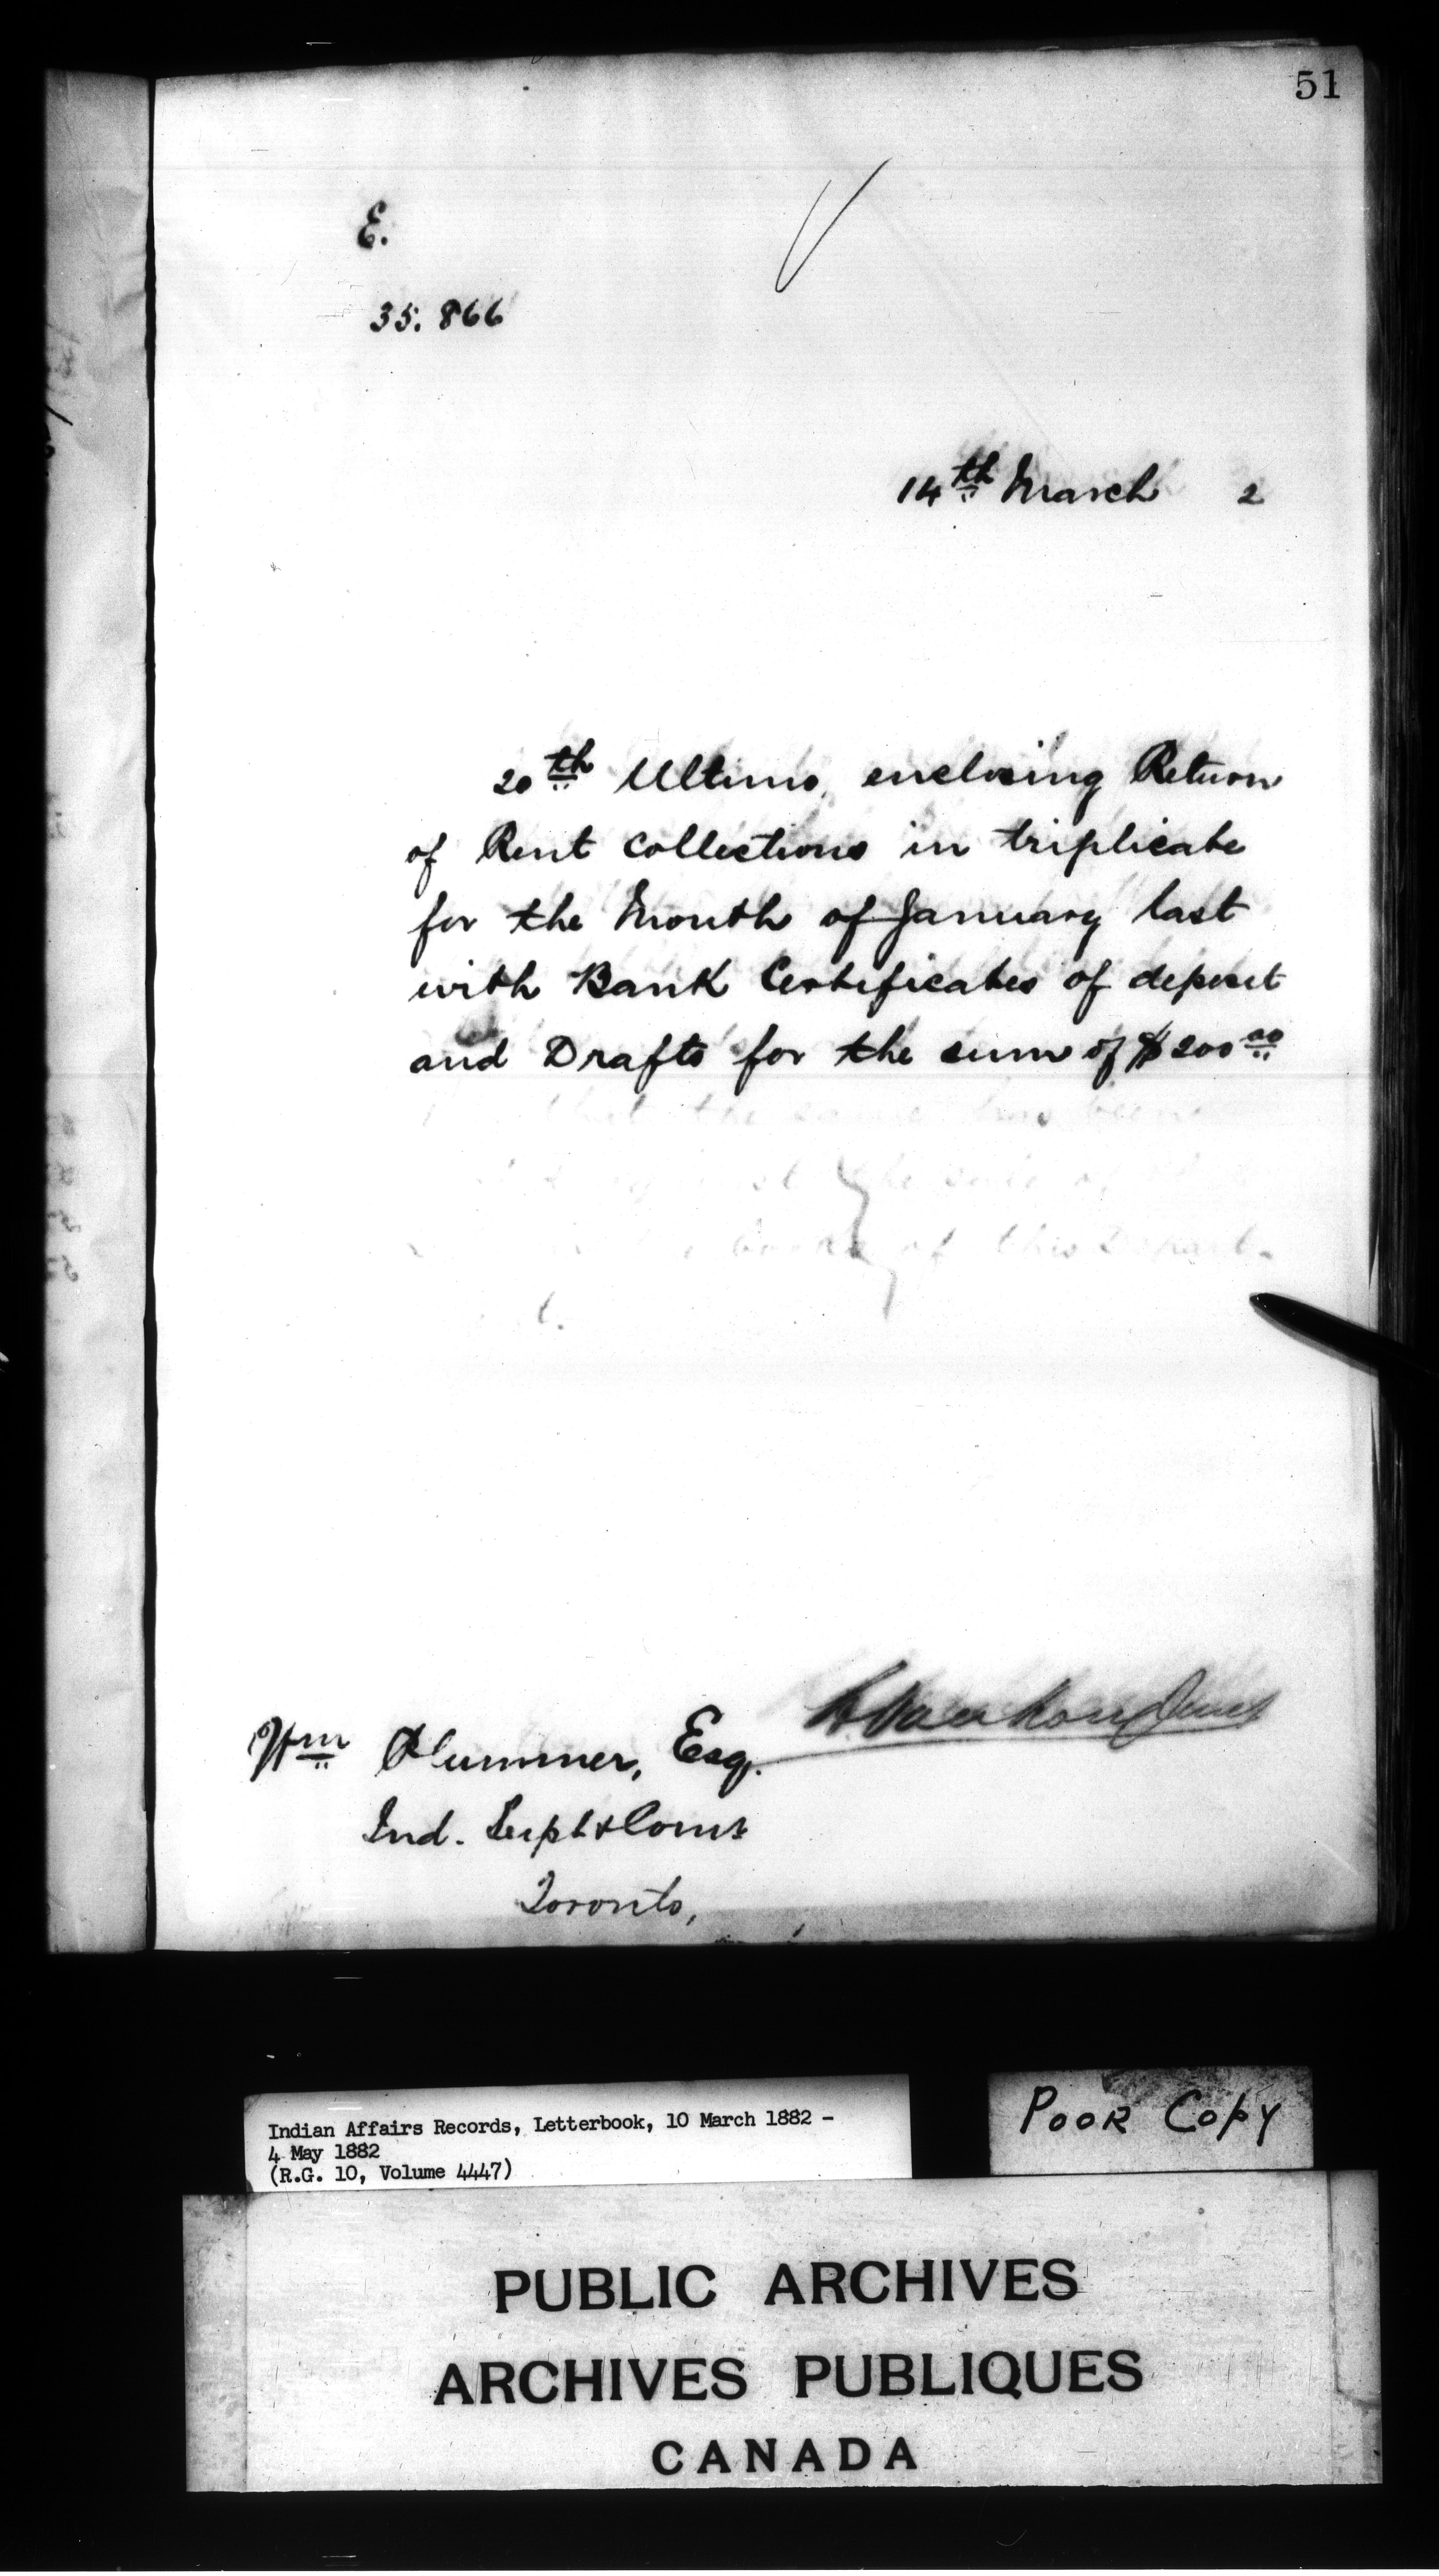 51
E.
35.866
14th March 2
20th Ultimo, enclosing Return
of Rent Collections in triplicate
for the Month of January last
with Bank Certificates of deposit
and Drafts for the sum of $200.00
that the same has been
the side of
books of this Depart-
Wm Plummer, Esq.
Ind. Supt & Comr
Toronto,
Indian Affairs Records, Letterbook, 10 March 1882 -
4 May 1882
(R.G. 10, Volume 4447)
POOR COPY
PUBLIC ARCHIVES
ARCHIVES PUBLIQUES
CANADA